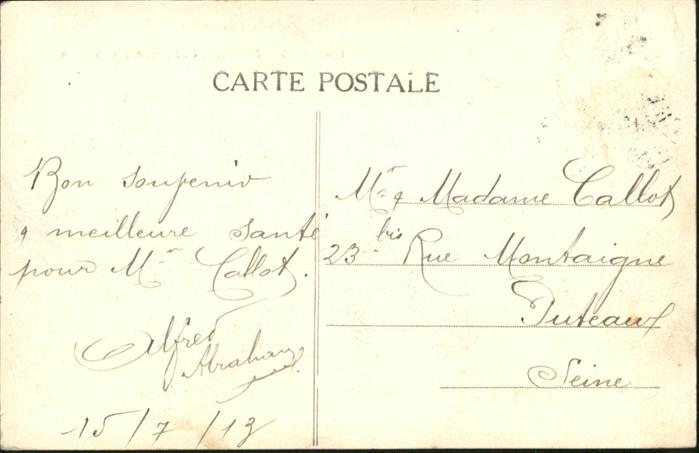 CARTE POSTALE
Bon souvenir
& meilleure santé
pour Mr Callot.
Alfred
Abraham
15/7/13
Mr & Madame Callot
23 bis Rue Montaigne
Puteaux
Seine